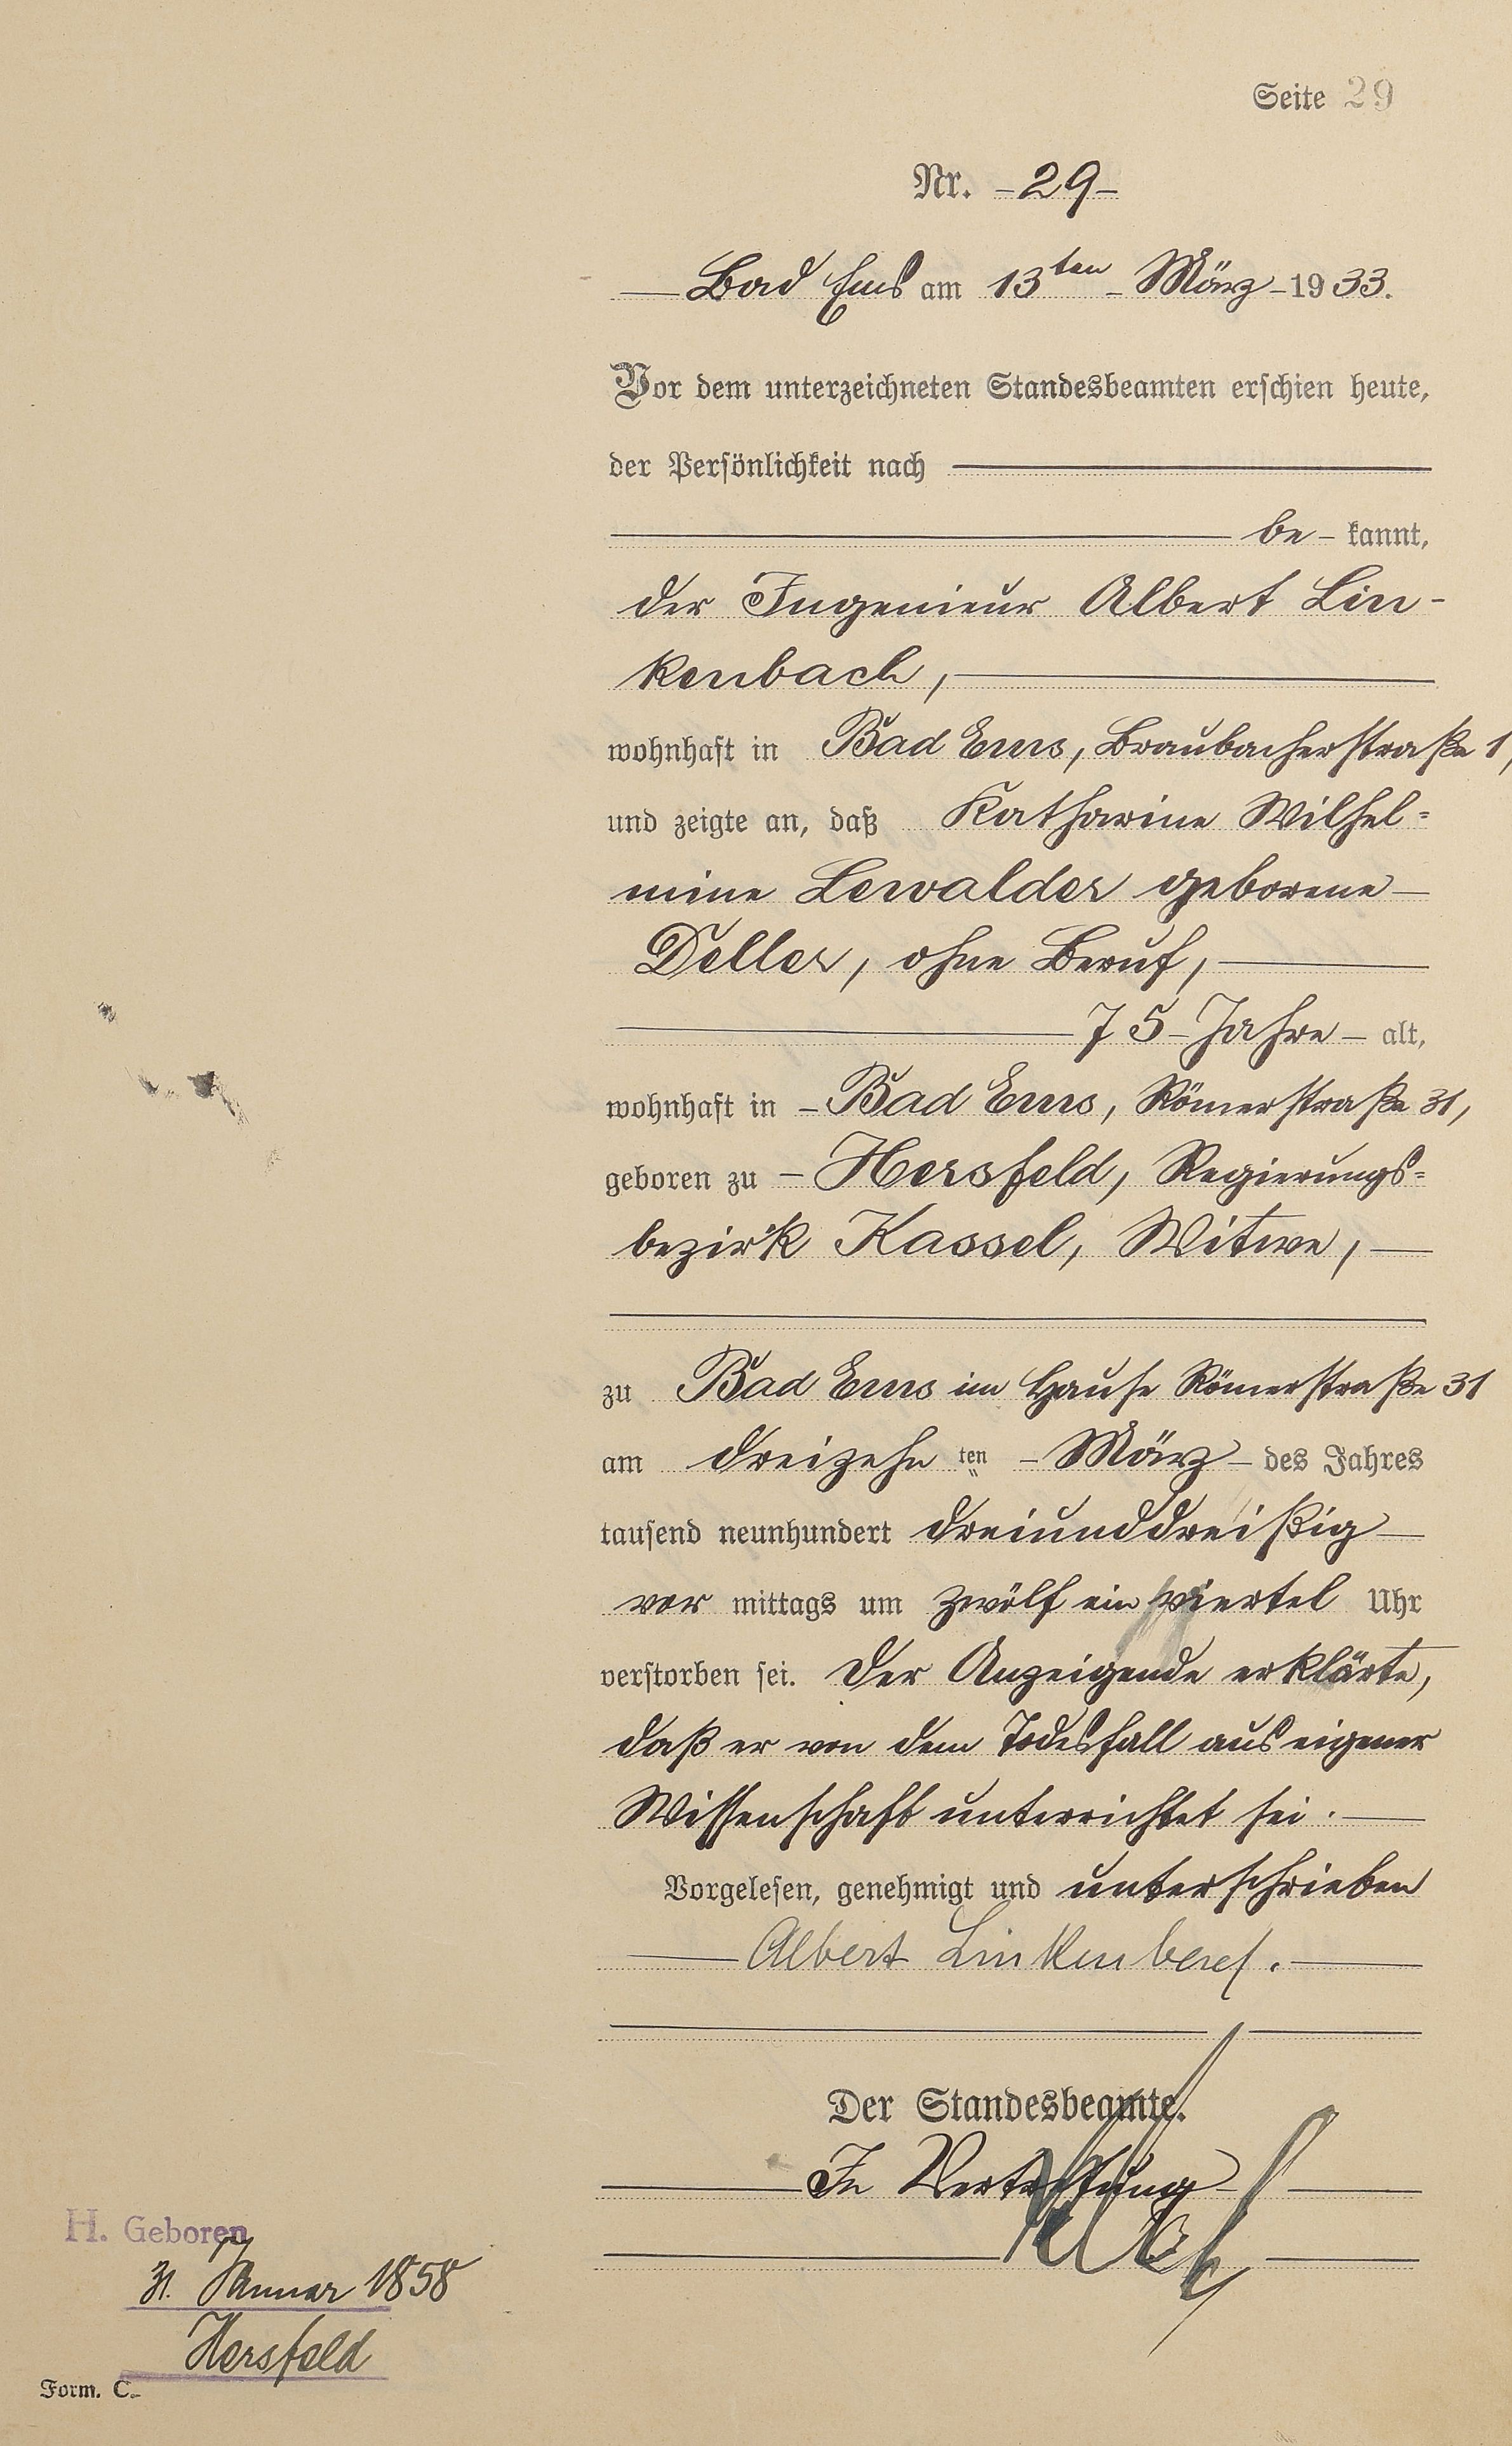 Seite 29
Nr. -29-
Bad Ems am 13ten März 1933.
Vor dem unterzeichneten Standesbeamten erschien heute,
der Persönlichkeit nach
be- kannt,
der Ingenieur Albert Lin-
kenbach,
wohnhaft in Bad Ems, Braubacherstraße 1,
und zeigte an, daß Katharine Wilhel=
mine Lewalder geborene
Deller, ohne Beruf,
75 Jahre alt,
wohnhaft in Bad Ems, Römerstraße 31,
geboren zu Hersfeld, Regierungs=
bezirk Kassel, Witwe,
zu Bad Ems im Hause Römerstraße 31
am dreizehn ten März des Jahres
tausend neunhundert dreiunddreißig
vor mittags um zwölf ein viertel Uhr
verstorben sei. Der Anzeigende erklärte,
daß er von dem Todesfall aus eigener
Wissenschaft unterrichtet sei.
Vorgelesen, genehmigt und unterschrieben
Albert Linkenbach.
Der Standesbeamte.
In Vertretung
H. Geboren
31. Januar 1858
Hersfeld
Form. C.